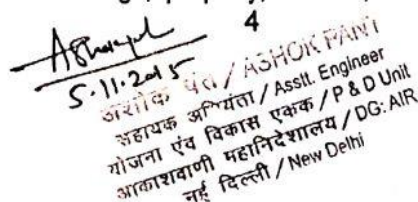 4
5.11.2015
अशोक पंत / ASHOK PANT
सहायक अभियंता / Asstt. Engineer
योजना एंव विकास एकक / P & D Unit
आकाशवाणी महानिदेशालय / DG: AIR
नई दिल्ली / New Delhi